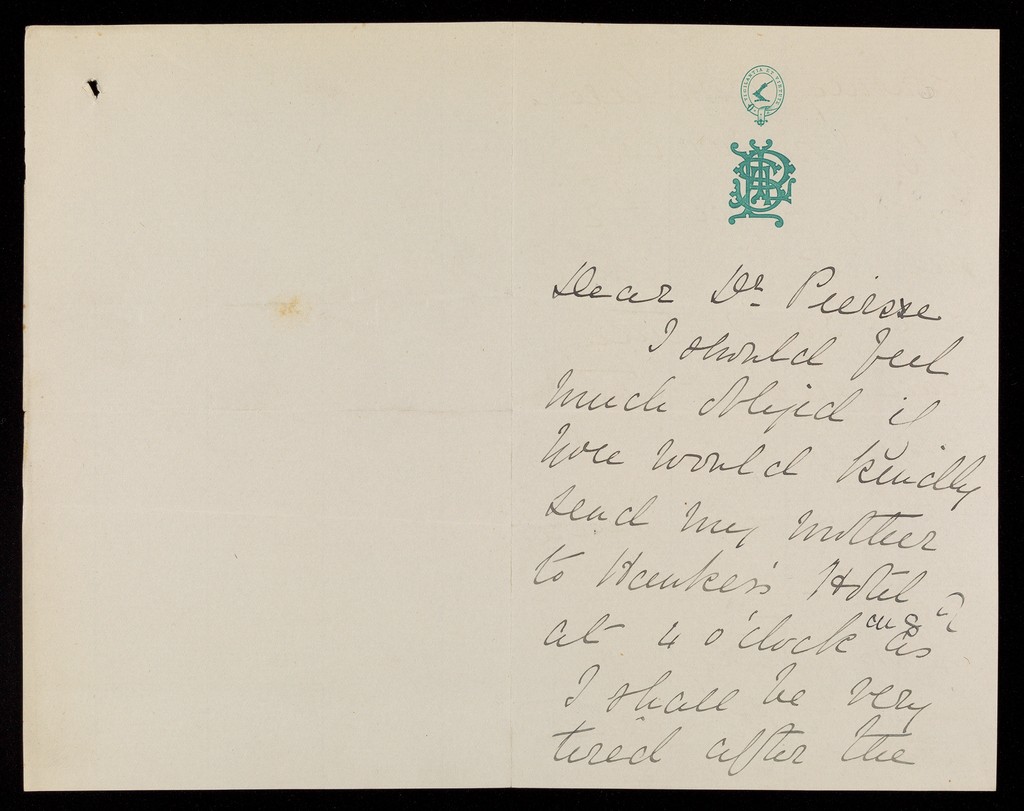 VIGILANTIA ET VIRTUTE
Dear Dr. Pierse
I should feel
much obliged if
you would kindly
send my mother
to Hawker's Hotel
at 4 o'clock as
I shall be very
tired after the